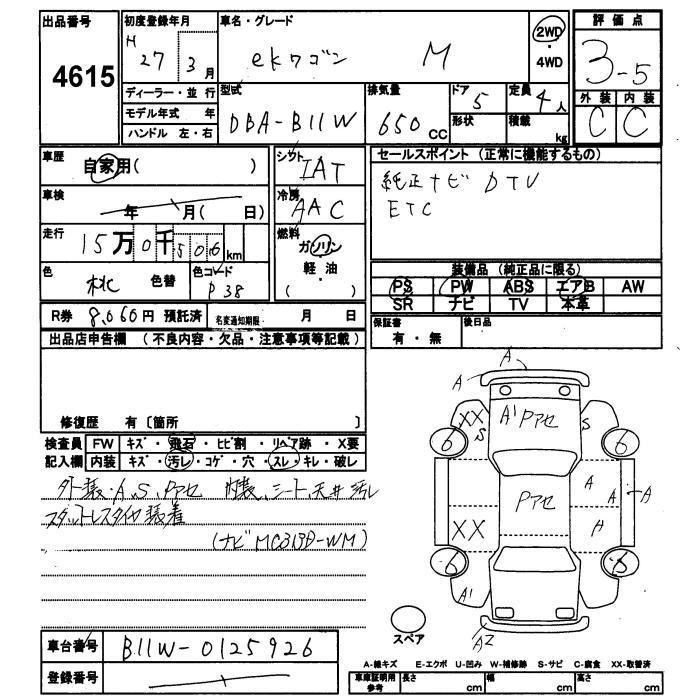 出品番号
4615
初度登録年月
H 27 3月
車名・グレード
ekワゴン M
2WD
・
4WD
評価点
3-5
外装 内装
C C
ディーラー・並行
モデル年式 年
ハンドル 左・右
型式
DBA-B11W
排気量
650 CC
ドア 5
形状
定員 4人
積載 kg
車歴
自家用( )
車検
年 月( 日)
走行
15万0千506km
色 桃 色替
色コード P38
シフト IAT
冷房 AAC
燃料
ガソリン
軽・油
( )
セールスポイント(正常に機能するもの)
純正ナビ DTV
ETC
装備品(純正品に限る)
PS PW ABS エアB AW
SR ナビ TV 本革
R券 8,060円 預託済 名変通知期限 月 日
保証書
有・無
後日品
出品店申告欄(不良内容・欠品・注意事項等記載)
修復歴 有〔箇所 〕
検査員 FW キズ・飛石・ヒビ割・リペア跡・X要
記入欄 内装 キズ・汚レ・コゲ・穴・スレ・キレ・破レ
外装:A、S、Pアセ 内装、シート、天井汚レ
スタットレスタイヤ装着
(ナビMC313D-WM)
A
A
XX S A1 Pアセ S
6 6
Pアセ A A A
XX A
6 5
A1
A2
スペア
車台番号 B11W-0125926
登録番号
A-線キズ E-エクボ U-凹み W-補修跡 S-サビ C-腐食 XX-取替済
車庫証明用
参考
長さ cm 幅 cm 高さ cm